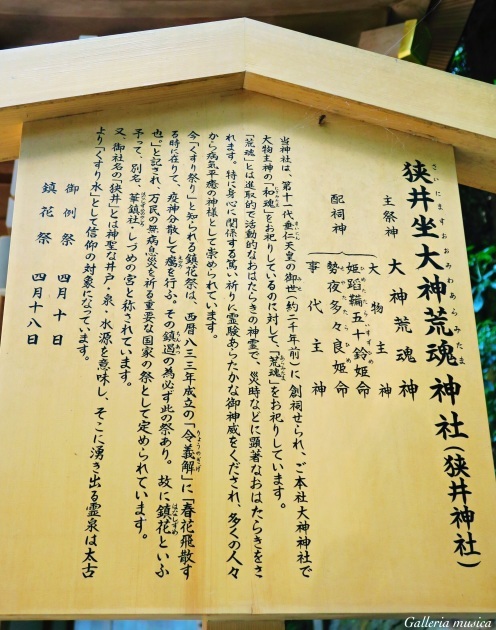 狭井坐大神荒魂神社(狭井神社)
さいにますおおみわあらみたま
主祭神 大神荒魂神
配祠神
大物主神
姫蹈鞴五十鈴姫命
ひめたたらいすずひめ
勢夜多々良姫命
せやたたらひめ
事代主神
当神社は、第十一代垂仁天皇の御世(約二千年前)に創祠せられ、ご本社大神神社で
大物主神の「和魂」をお祀りしているのに対して、「荒魂」をお祀りしています。
「荒魂」とは進取的で活動的なおはたらきの神霊で、災時などに顕著なおはたらきをさ
れます。特に身心に関係する篤い祈りに霊験あらたかな御神威をくだされ、多くの人々
から病気平癒の神様として崇められています。
今「くすり祭り」と知られる鎮花祭は、西暦八三三年成立の「令義解」に「春花飛散す
りょうのぎげ
る時に在りて、疫神分散して癘を行ふ。その鎮遏の為必ず此の祭あり。故に鎮花といふ
はなしずめ
也。」と記され、万民の無病息災を祈る重要な国家の祭として定められています。
予って、別名、華鎮社・しづめの宮と称されています。
又、御社名の「狭井」とは神聖な井戸・泉・水源を意味し、そこに湧き出る霊泉は太古
より「くすり水」として信仰の対象になっています。
御例祭 四月十日
鎮花祭 四月十八日
Galleria musica